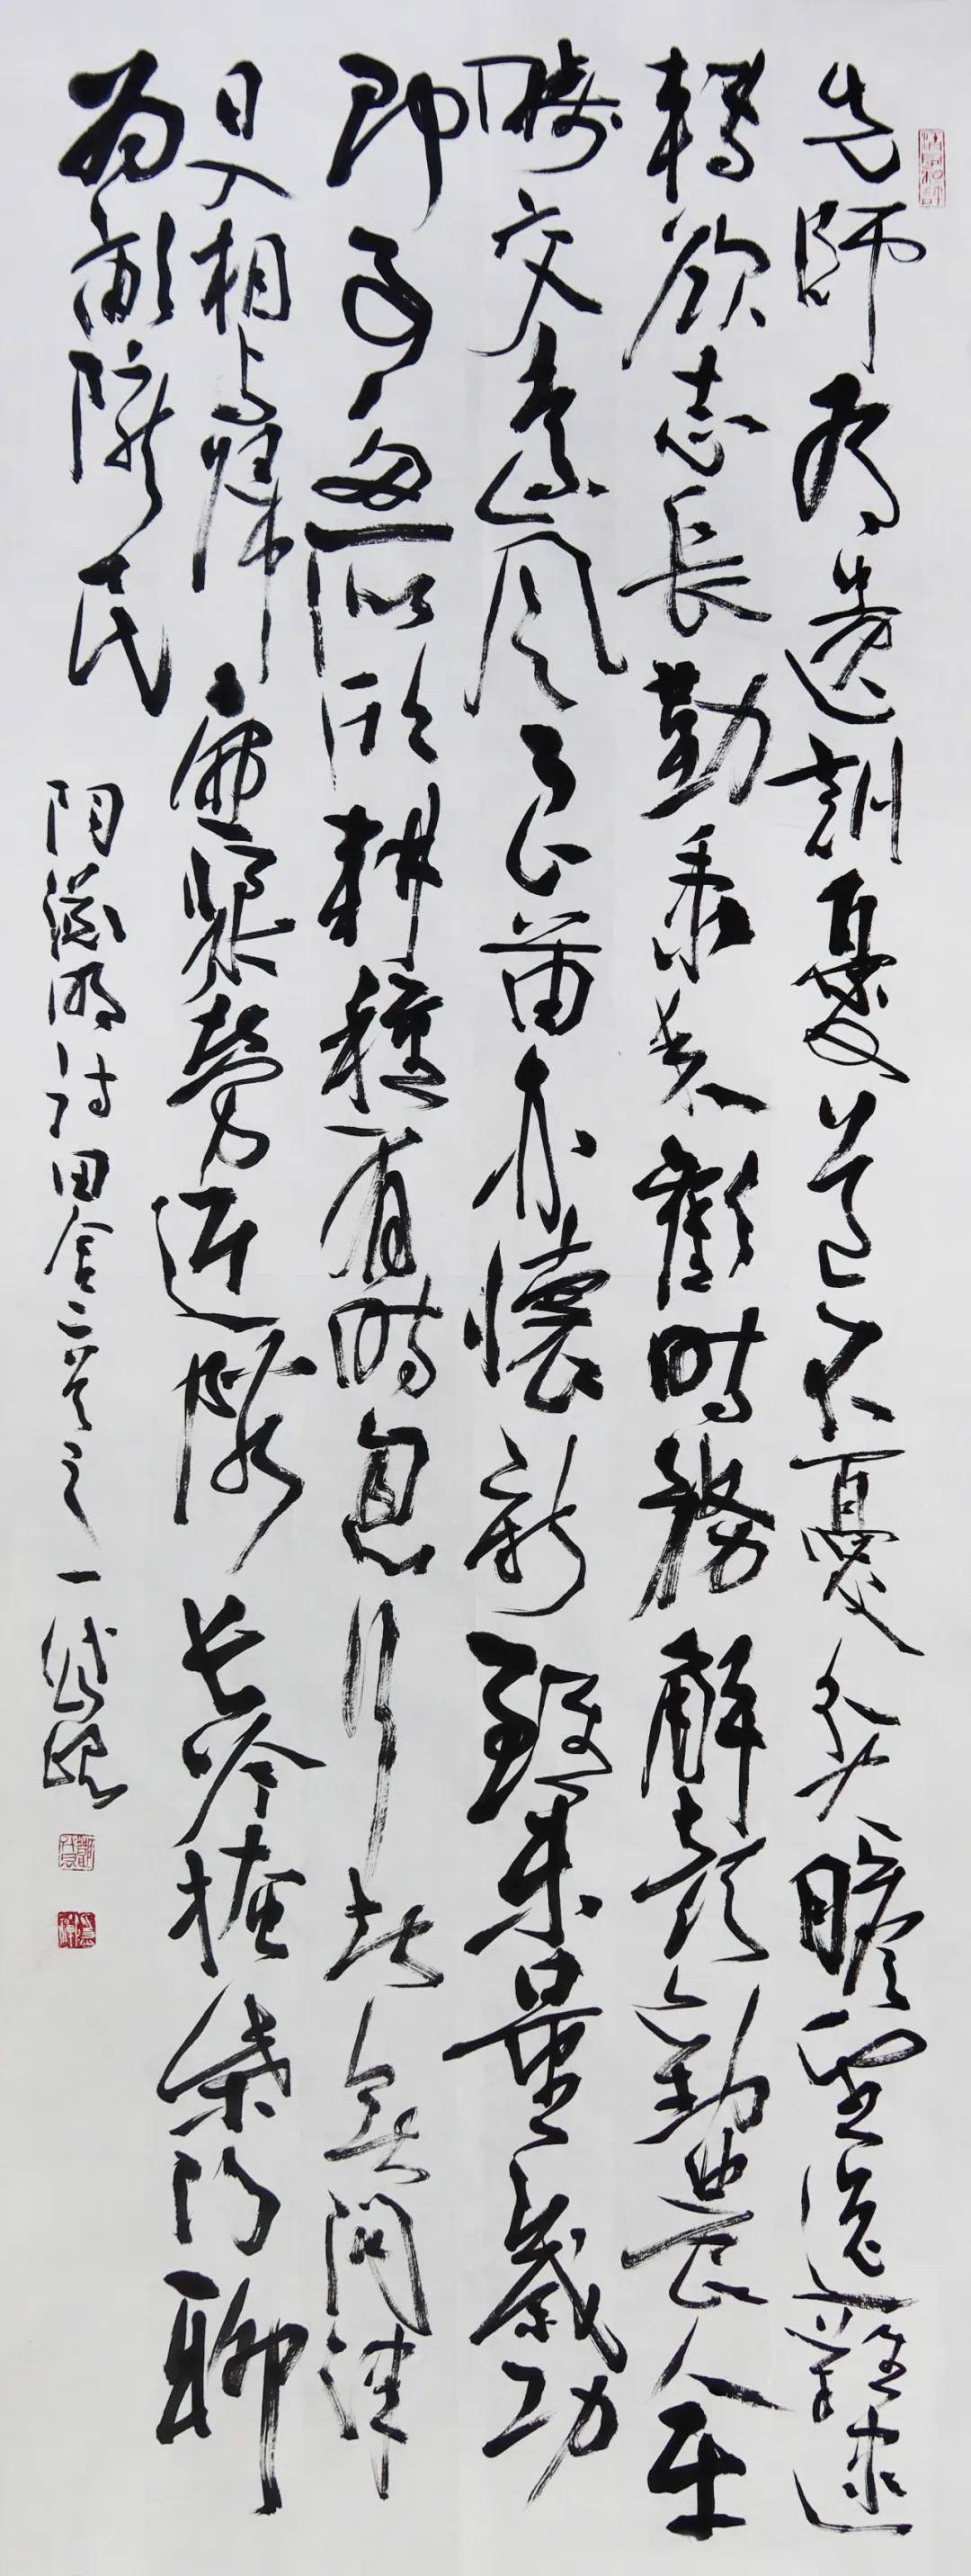 先師有遺訓憂道不憂貧瞻望邈難逮
轉欲志長勤秉耒歡時務解顏勸農人平
疇交遠風良苗亦懷新雖未量歲功
即事多所欣耕種有時息行者無問津
日入相與歸壺漿勞近鄰長吟掩柴門聊
為畝隴民
陶淵明詩田舍二首之一